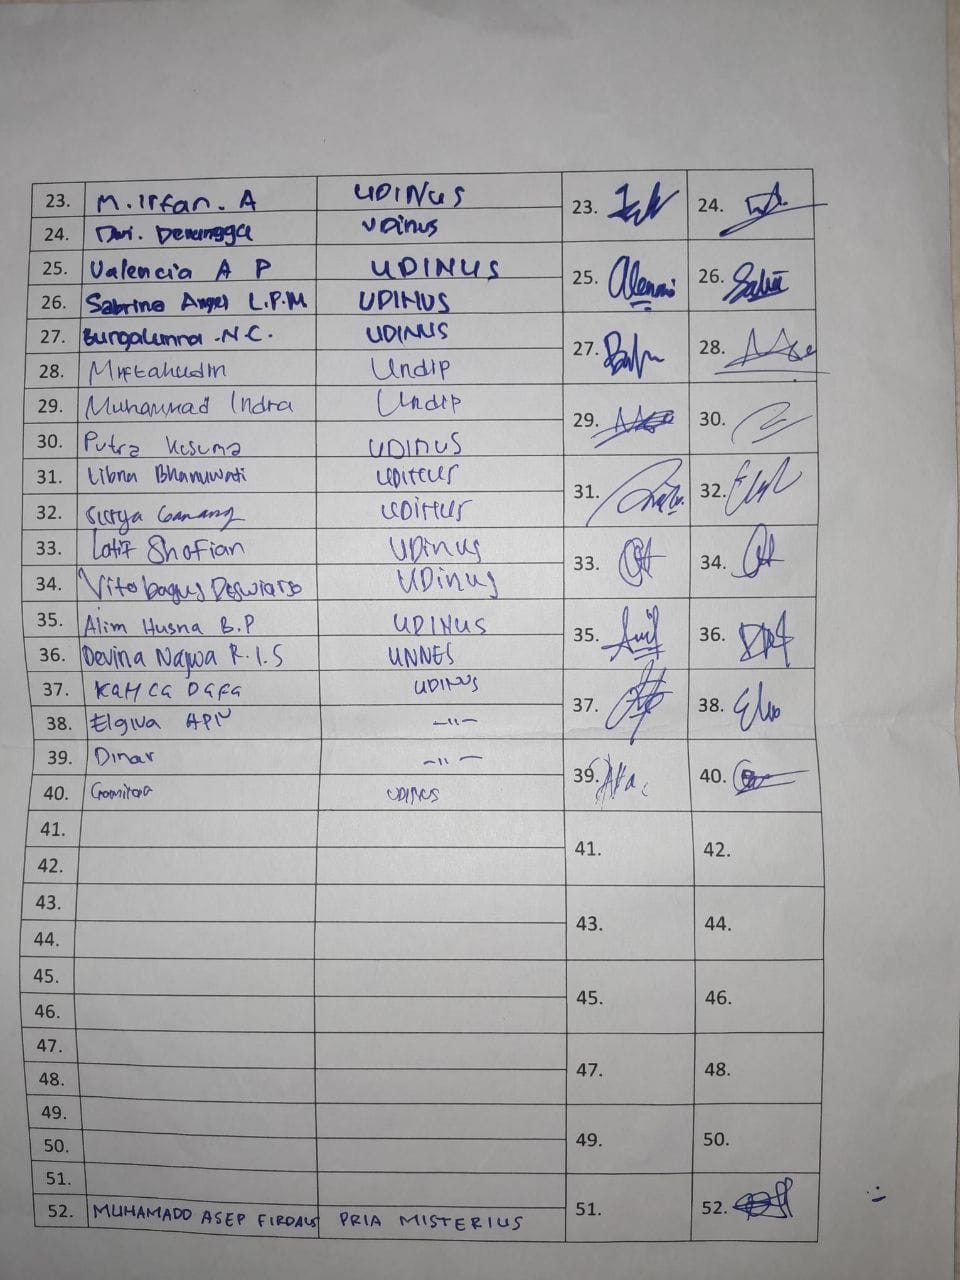 23. M. Irfan. A UDINUS 23. 24.
24. Dwi. Denangga UDINUS
25. Valencia A P UDINUS 25. 26.
26. Sabrina Angel L.P.M. UDINUS
27. N.C. UDINUS 27. 28.
28. Miftahudin Undip
29. Muhammad Indra Undip 29. 30.
30. Putra Kusuma UDINUS
31. Libna Bhanuwati UDINUS 31. 32.
32. Surya Ganang UDINUS
33. Latif Shofian UDinus 33. 34.
34. Vito bagus UDinus
35. Alim Husna B.P UDINUS 35. 36.
36. Devina Najwa R.I.S UNNES
37. Kahca Dafa UDINUS 37. 38.
38. Elgiva APN -"-
39. Dinar -"- 39. 40.
40. UDINUS
41. 41. 42.
42.
43. 43. 44.
44.
45. 45. 46.
46.
47. 47. 48.
48.
49. 49. 50.
50.
51. 51. 52.
52. MUHAMADD ASEP FIRDAUS PRIA MISTERIUS